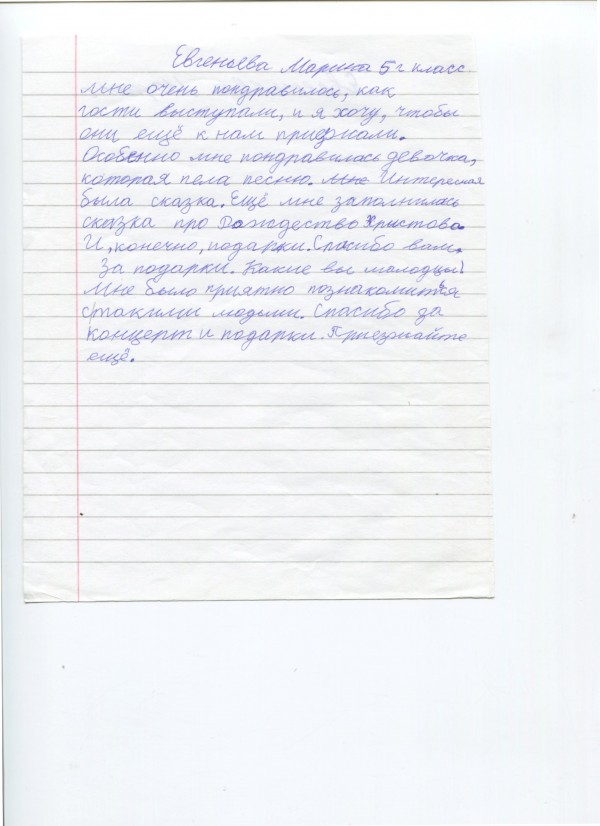 Евгеньева Марина 5г класс.
Мне очень пондравилось, как
гости выступали, и я хочу, чтобы
они ещё к нам приезжали.
Особенно мне пондравилась девочка,
которая пела песню. Мне Интересная
была сказка. Ещё мне заполнилась
сказка про Рождество Христова.
И, конечно, подарки. Спасибо вам.
За подарки. Какие вы молодцы!
Мне было приятно познакомится
с такими людьми. Спасибо за
концерт и подарки. Приезжайте
ещё.